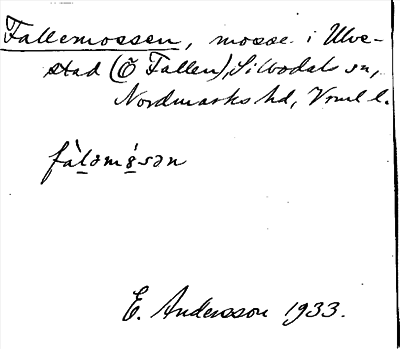 Fallemossen, mosse i Ulve-
stad (Ö Fallen), Silbodals sn,
Nordmarks hd, Vrml l.
fàləmósən
E. Andersson 1933.